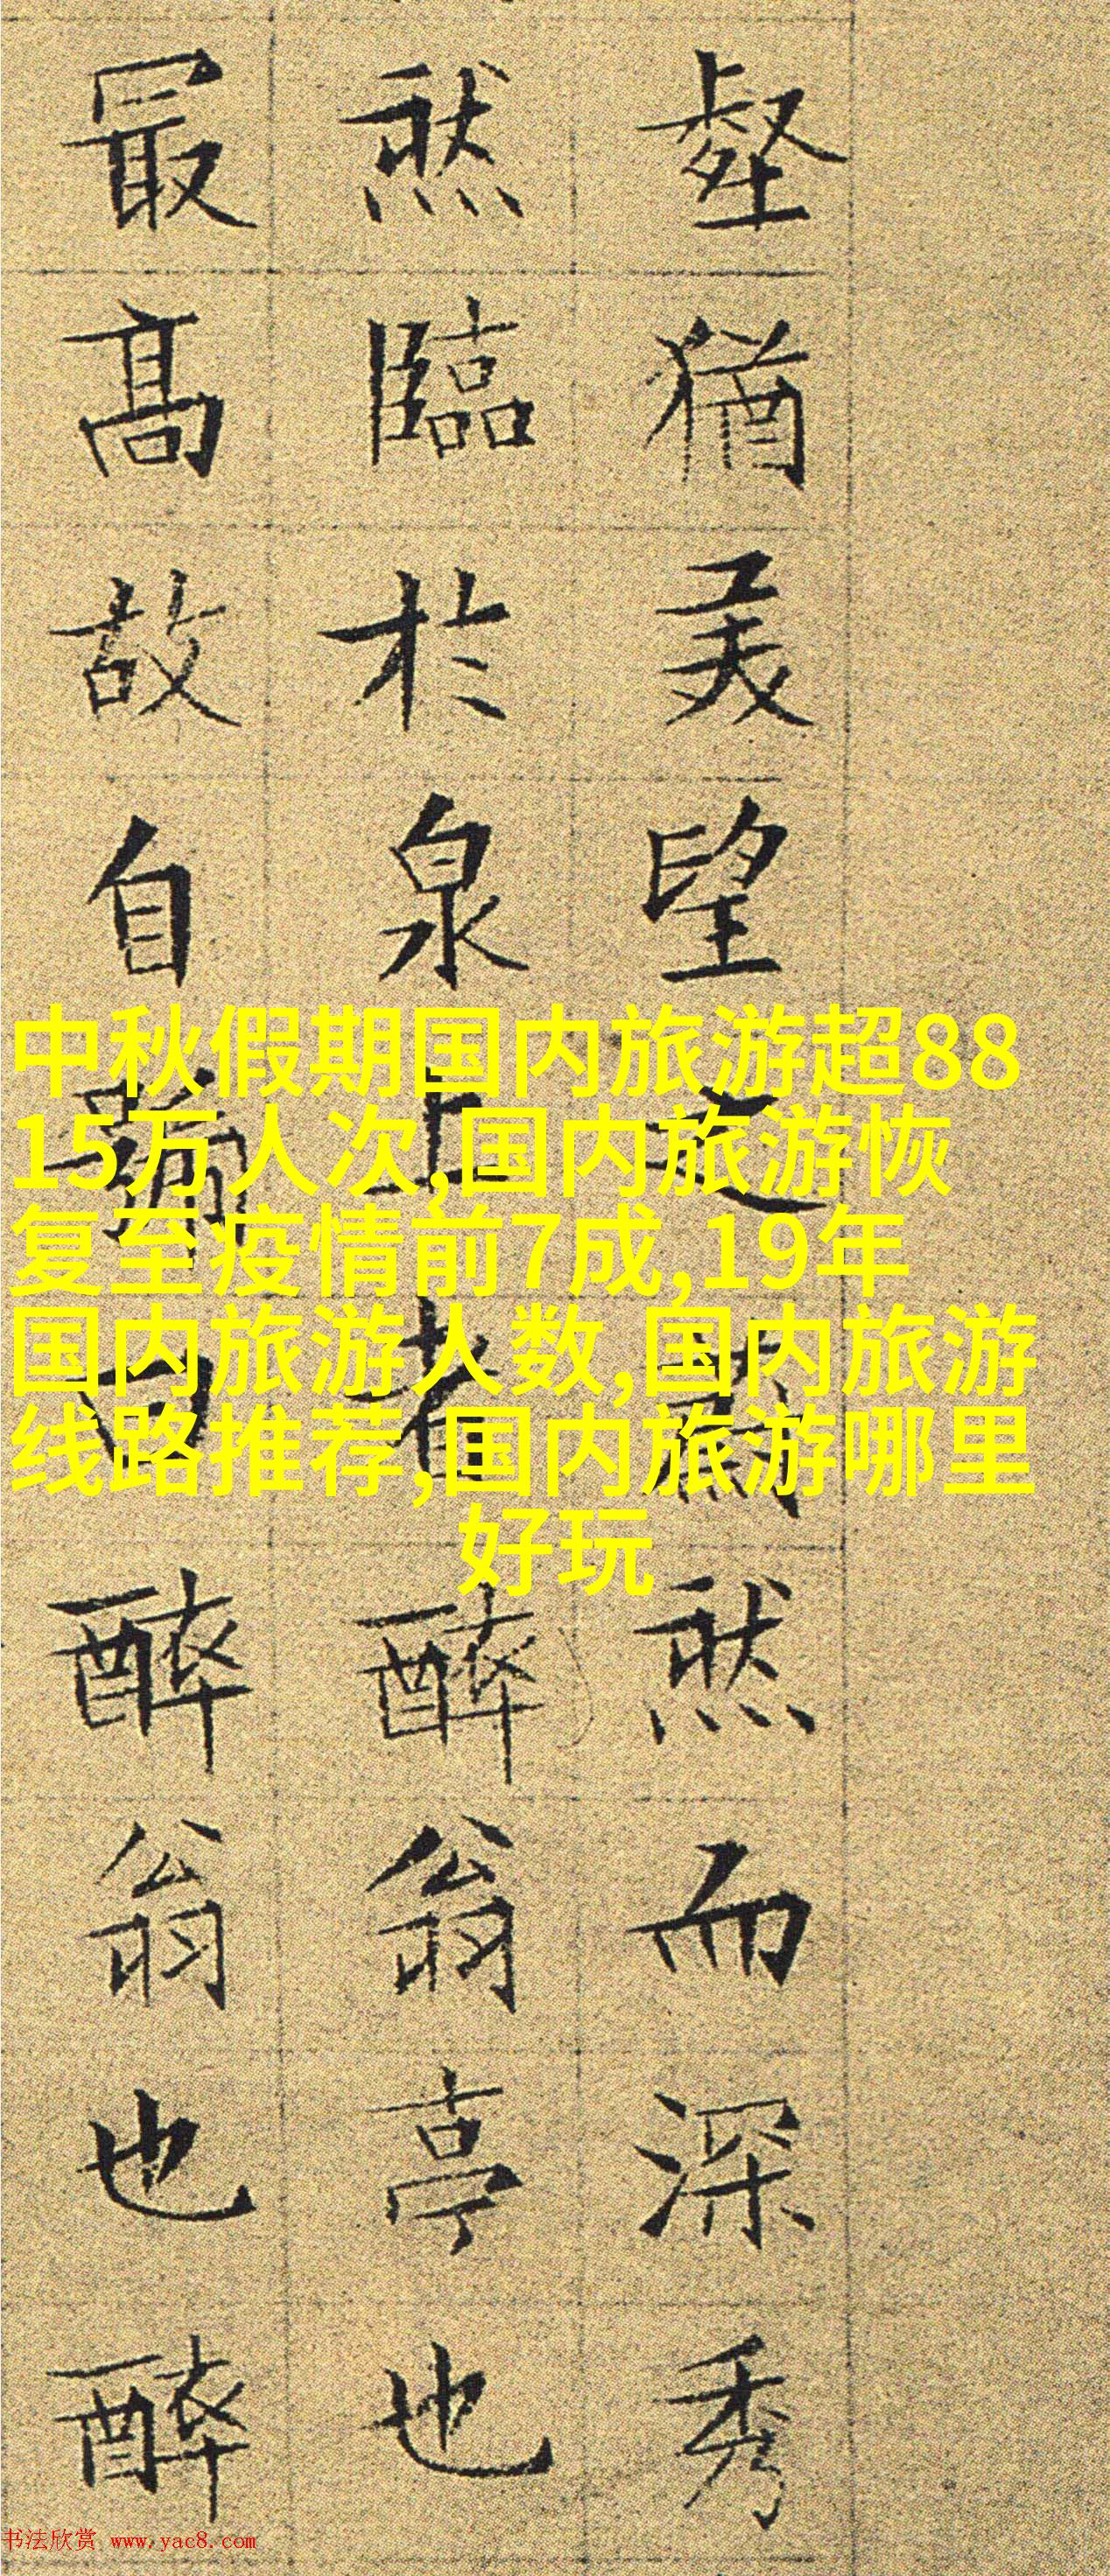 壑猶美望之蔚然而深秀
然臨於泉上者醉翁亭也
最高故自號曰醉翁也醉
中秋假期国内旅游超88
15万人次,国内旅游恢
复至疫情前7成,19年
国内旅游人数,国内旅游
线路推荐,国内旅游哪里
好玩
书法欣赏 www.yac8.com